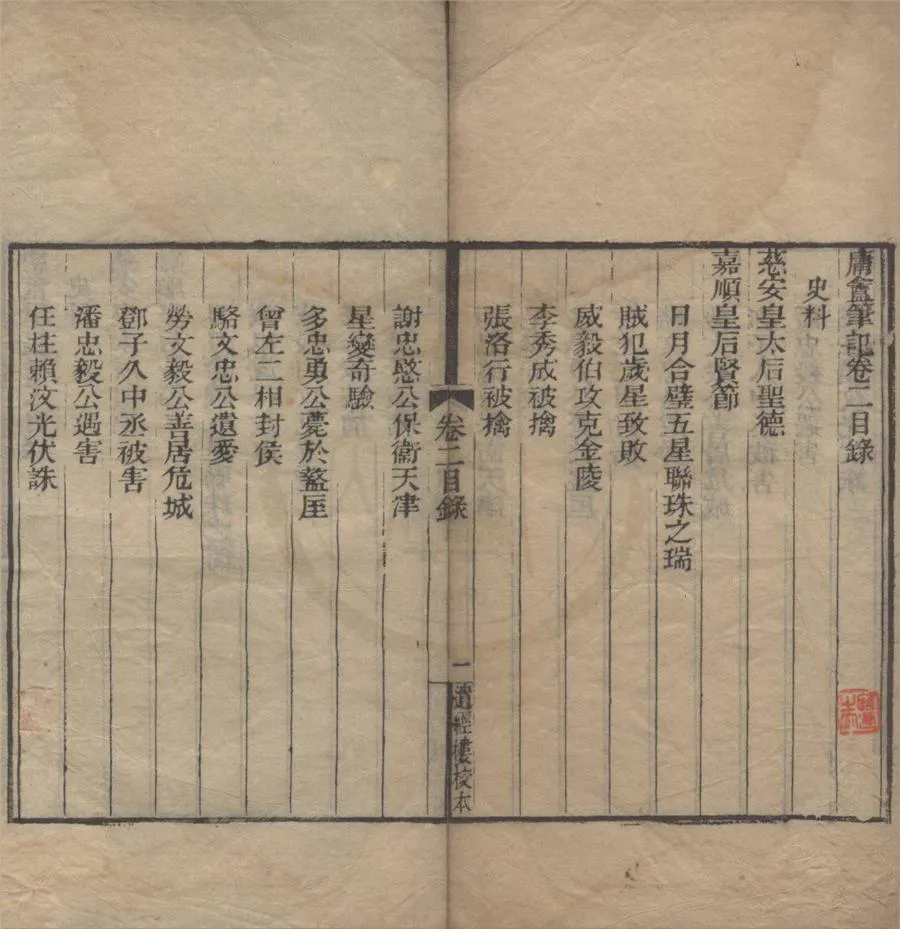 庸盦筆記卷二目錄
史料
慈安皇太后聖德
嘉順皇后賢節
日月合璧五星聯珠之瑞
賊犯歲星致敗
威毅伯攻克金陵
李秀成被擒
張洛行被擒
卷二目錄
一
遺經樓校本
謝忠愍公保衛天津
星變奇驗
多忠勇公薨於盩厔
曾左二相封侯
駱文忠公遺愛
勞文毅公善居危城
鄧子久中丞被害
潘忠毅公遇害
任柱賴汶光伏誅